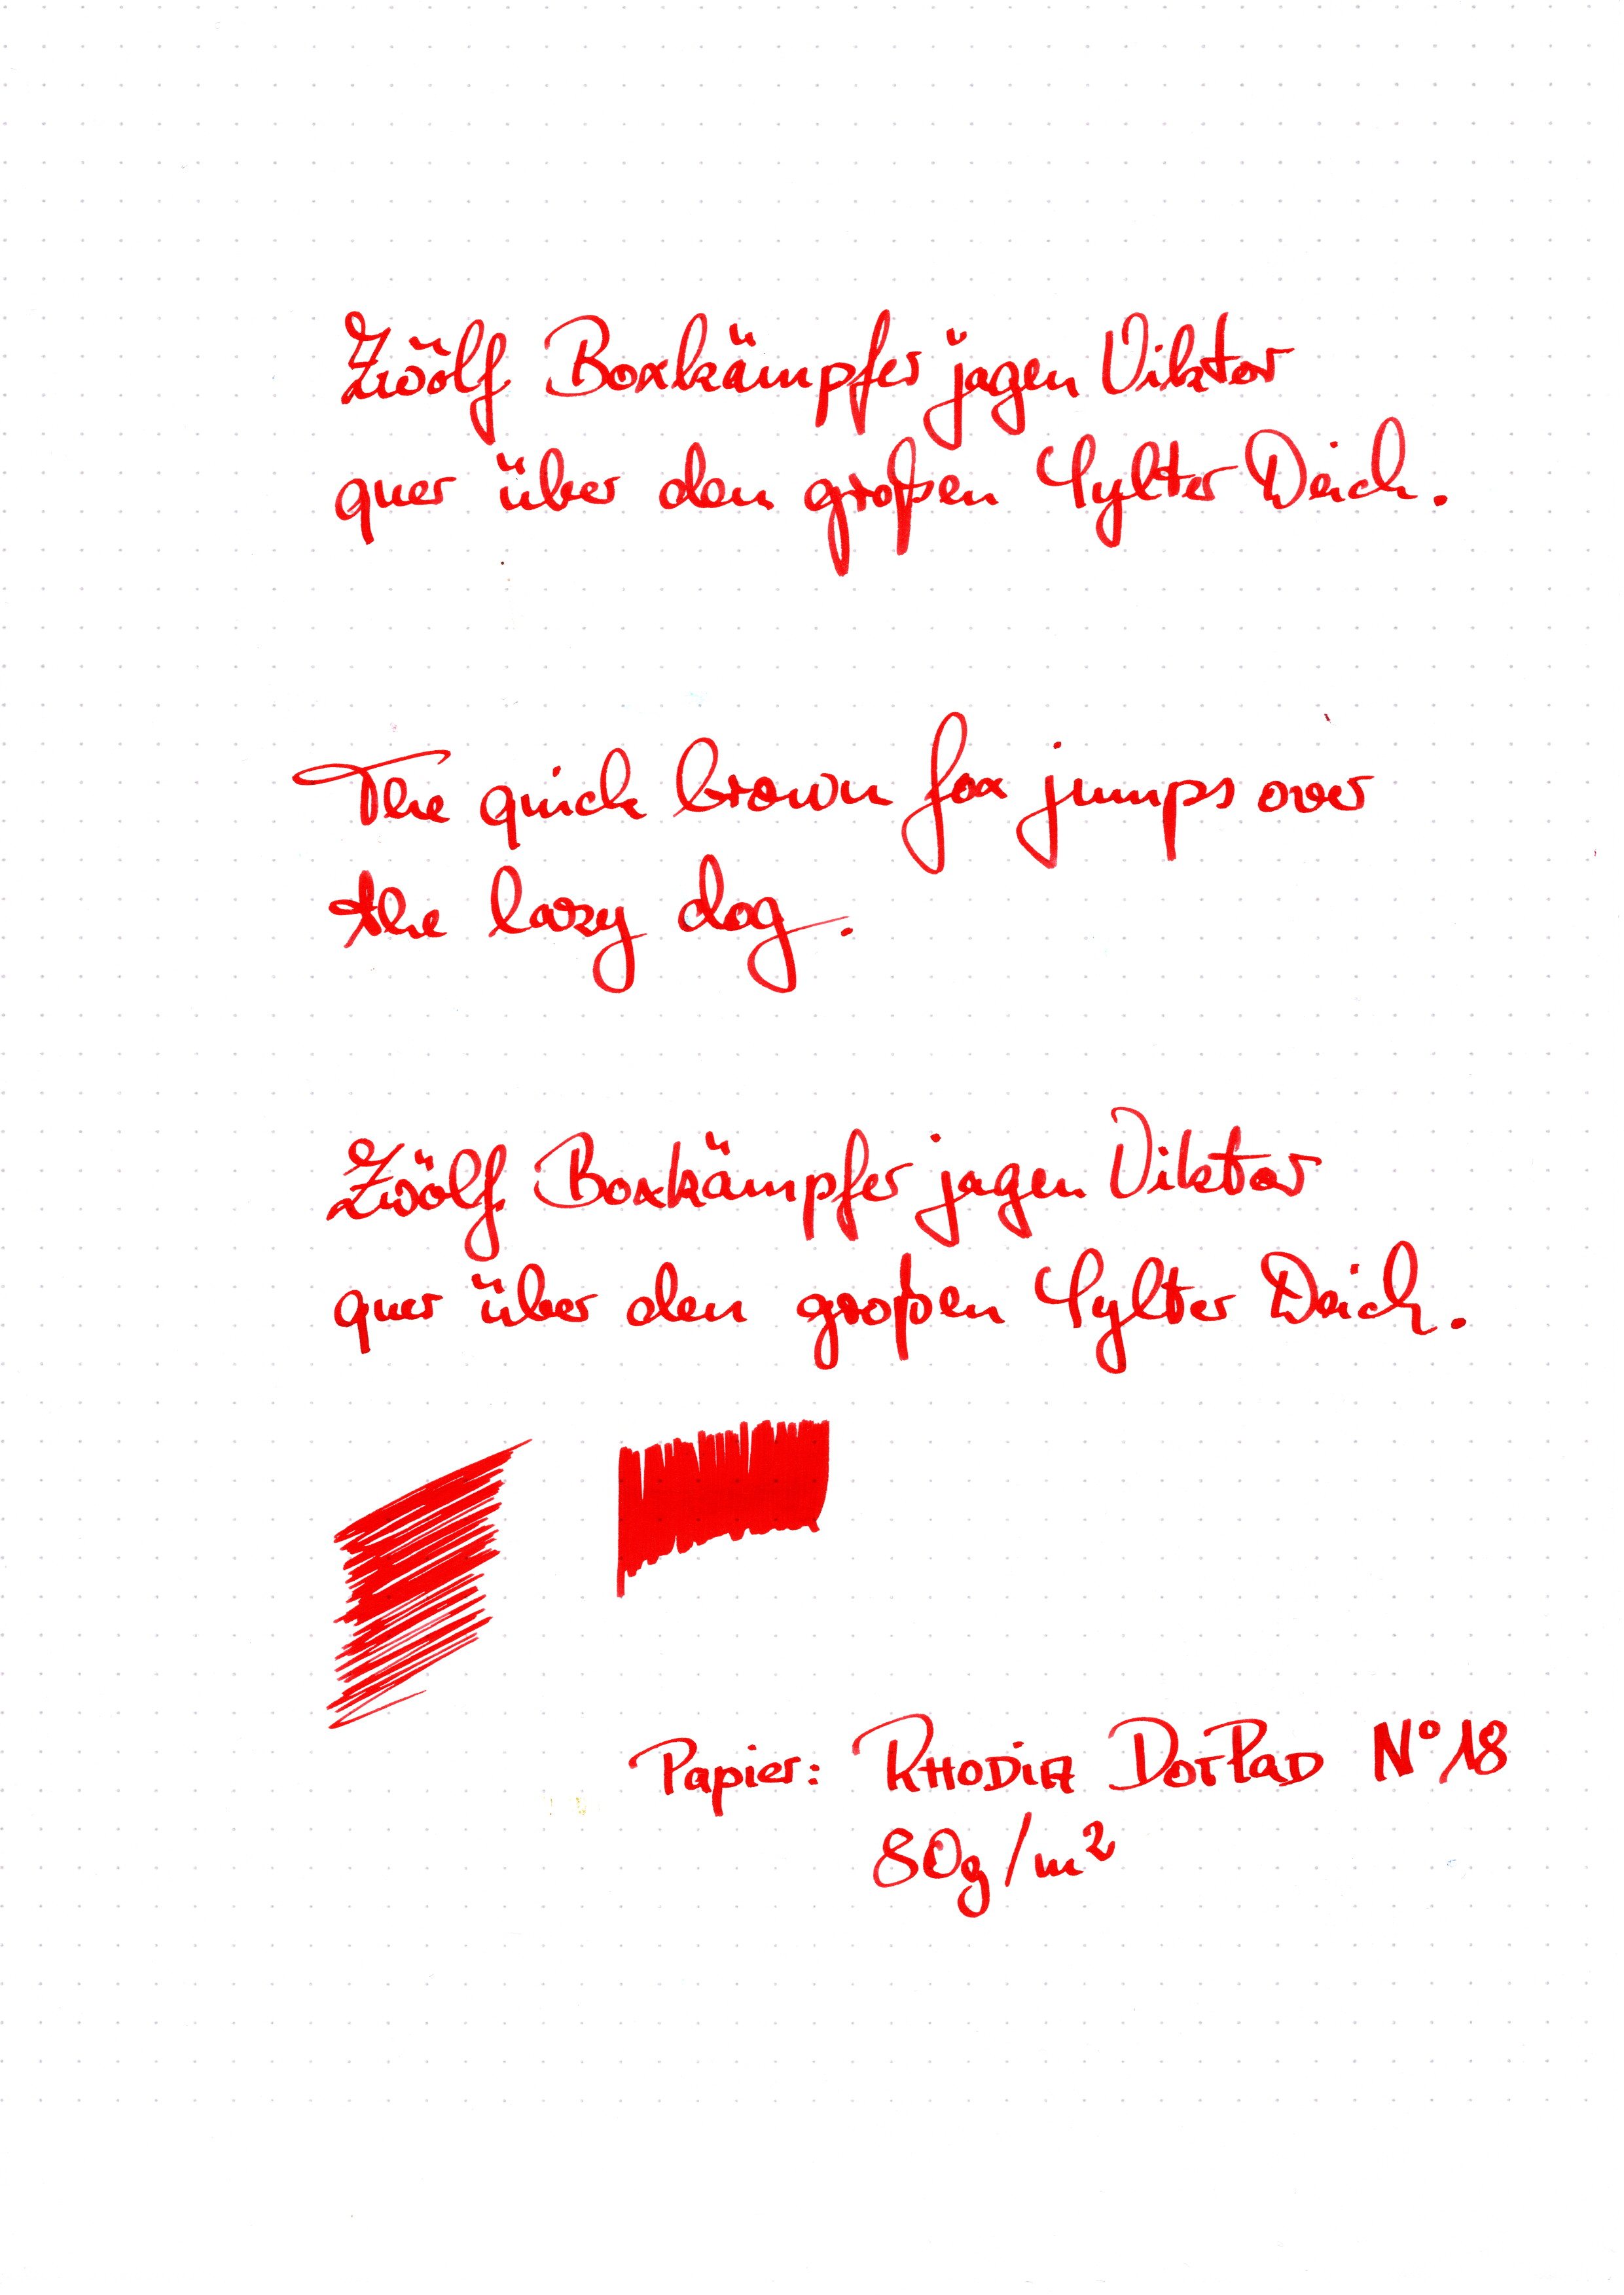 Zwölf Boxkämpfer jagen Viktor
quer über den großen Sylter Deich.
The quick brown fox jumps over
the lazy dog.
Zwölf Boxkämpfer jagen Viktor
quer über den großen Sylter Deich.
Papier: RHODiA DOTPaD N° 18
80g/m²